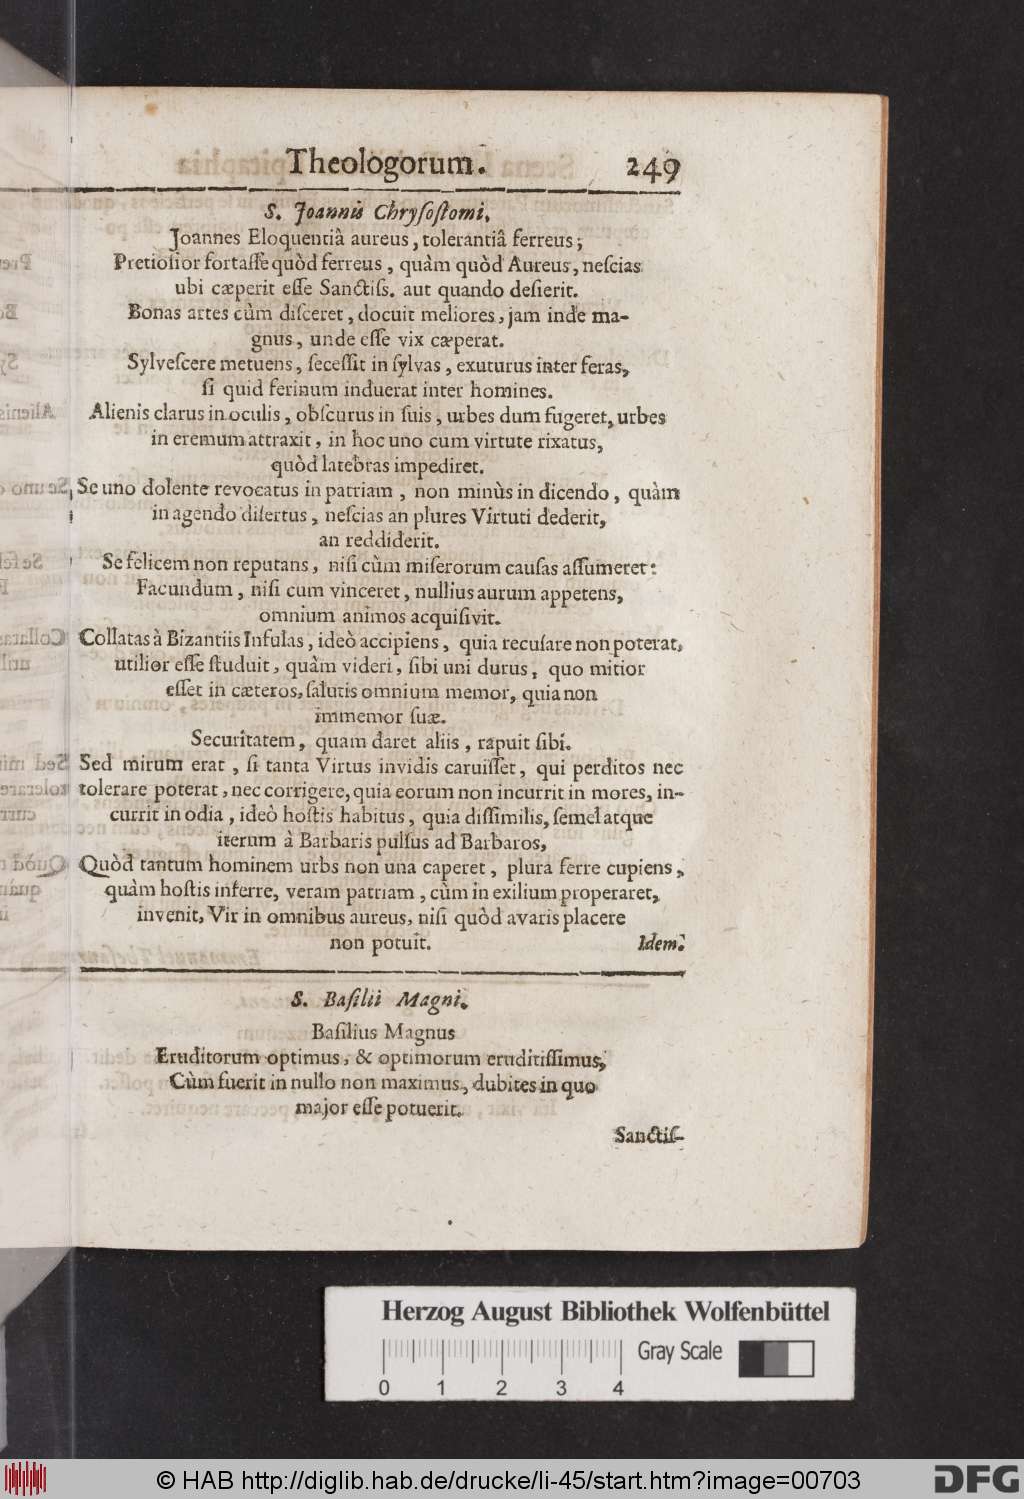 Theologorum. 249
S. Joannis Chryſoſtomi.
Joannes Eloquentiâ aureus, tolerantiâ ferreus;
Pretioſior fortaſſe quòd ferreus, quàm quòd Aureus, neſcias
ubi cæperit eſſe Sanctiſs. aut quando deſierit.
Bonas artes cùm diſceret, docuit meliores, jam inde ma-
gnus, unde eſſe vix cæperat.
Sylveſcere metuens, ſeceſſit in ſylvas, exuturus inter feras,
ſi quid ferinum induerat inter homines.
Alienis clarus in oculis, obſcurus in ſuis, urbes dum fugeret, urbes
in eremum attraxit, in hoc uno cum virtute rixatus,
quòd latebras impediret.
Se uno dolente revocatus in patriam, non minùs in dicendo, quàm
in agendo diſertus, neſcias an plures Virtuti dederit,
an reddiderit.
Se felicem non reputans, niſi cùm miſerorum cauſas aſſumeret:
Facundum, niſi cum vinceret, nullius aurum appetens,
omnium animos acquiſivit.
Collatas à Bizantiis Infulas, ideò accipiens, quia recuſare non poterat,
utilior eſſe ſtuduit, quàm videri, ſibi uni durus, quo mitior
eſſet in cæteros, ſalutis omnium memor, quia non
immemor ſuæ.
Securitatem, quam daret aliis, rapuit ſibi.
Sed mirum erat, ſi tanta Virtus invidis caruiſſet, qui perditos nec
tolerare poterat, nec corrigere, quia eorum non incurrit in mores, in-
currit in odia, ideò hoſtis habitus, quia diſſimilis, ſemel atque
iterum à Barbaris pulſus ad Barbaros,
Quòd tantum hominem urbs non una caperet, plura ferre cupiens,
quàm hoſtis inferre, veram patriam, cùm in exilium properaret,
invenit, Vir in omnibus aureus, niſi quòd avaris placere
non potuit. Idem.
S. Baſilii Magni.
Baſilius Magnus
Eruditorum optimus, & optimorum eruditiſſimus,
Cùm fuerit in nullo non maximus, dubites in quo
major eſſe potuerit.
Sanctiſ-
Herzog August Bibliothek Wolfenbüttel
Gray Scale
0 1 2 3 4
© HAB http://diglib.hab.de/drucke/li-45/start.htm?image=00703
DFG